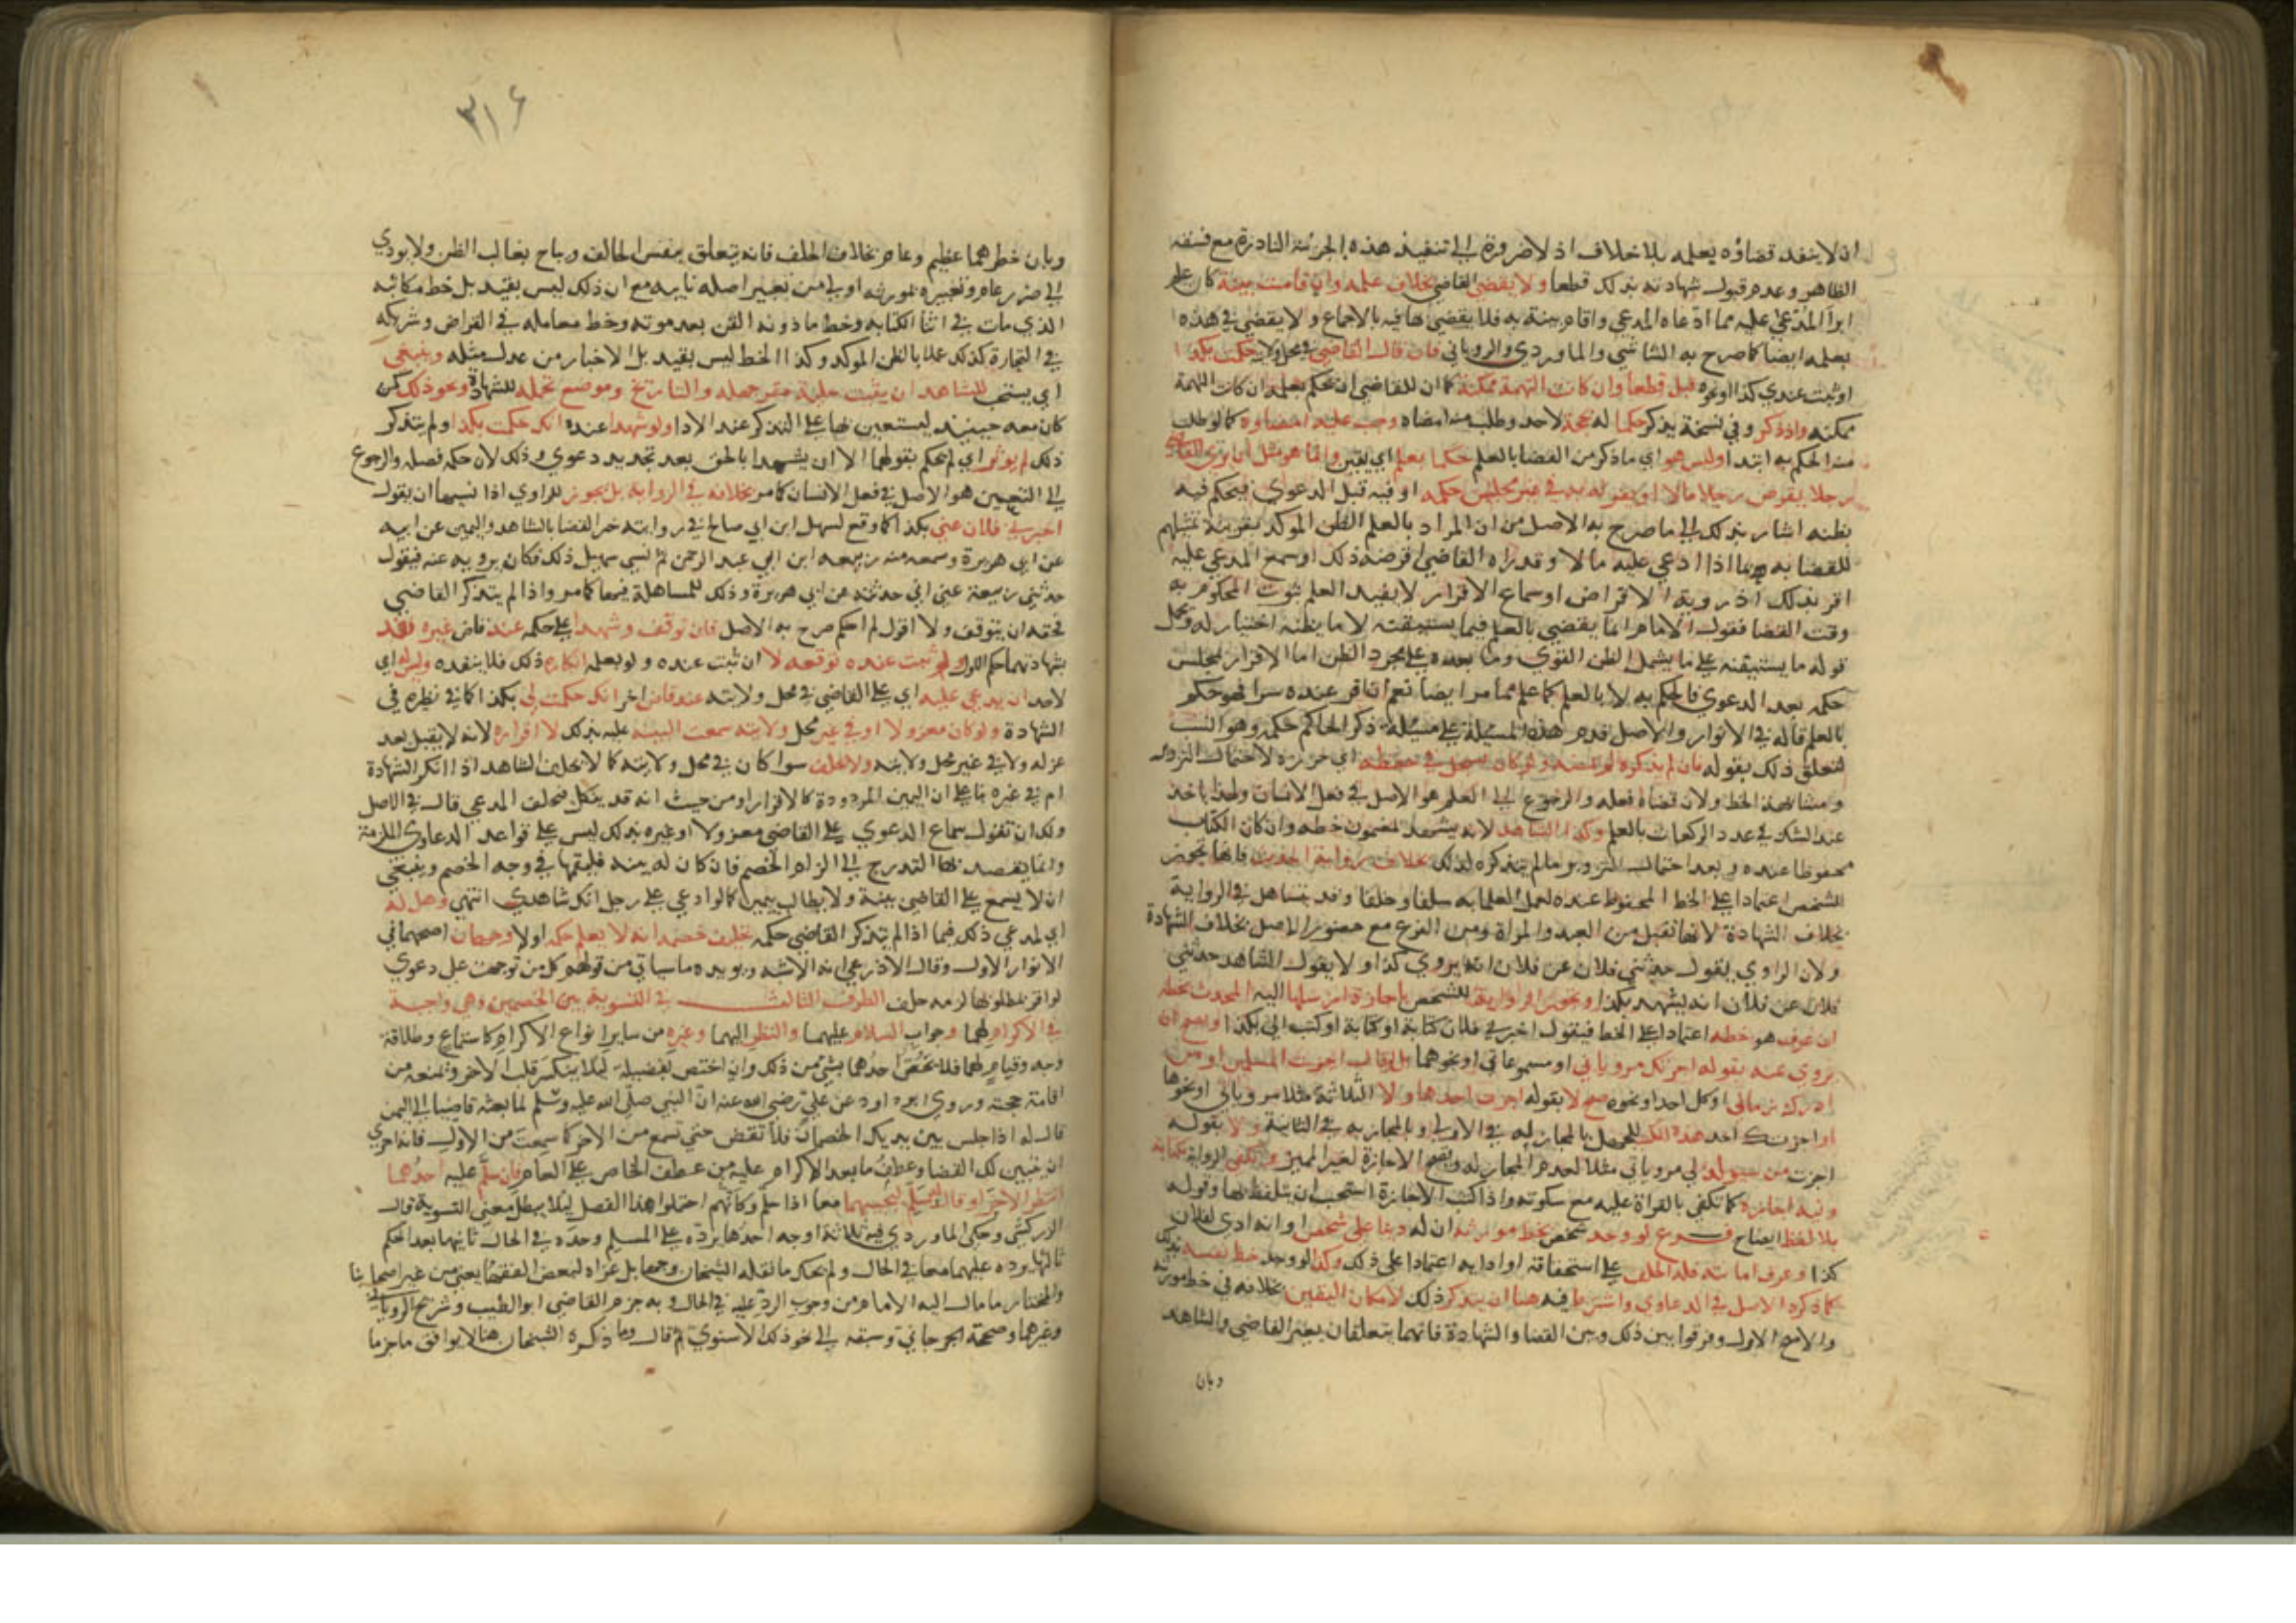 ان لا ينفذ قضاؤه بعلمه بلا خلاف اذ لا ضرورة الي تنفيذ هذه الجزئية النادرة مع فسقه
الظاهر وعدم قبول شهادته بذلك قطعا ولا يقضي القاضي بخلاف علمه وان قامت بينة كان علم
ابرا المدعي عليه مما ادعاه المدعي واقام بينة به فلا يقضي بها فيه بالاجماع ولا يقضي في هذه
بعلمه ايضا كما صرح به الشاشي والماوردي والروياني فان قال القاضي في محل ولايته حكمت بكذا
او ثبت عندي كذا او نحوه قبل قطعا وان كانت التهمة ممكنة كما ان للقاضي ان يحكم بعلمه وان كانت التهمة
ممكنه واذ ذكر وفي نسخة يذكر حكما له بحجة لاحد وطلب منه امضاه وجب عليه امضاوه كما لو طلب
منه الحكم به ابتدا وليس هو اي ما ذكر من القضا بالعلم حكما بعلم اي يقين وانما هو مثل ان يري القاضي
رجلا يقرض رجلا مالا او يقر له به في غير مجلس حكمه او فيه قبل الدعوي فيحكم فيه
بظنه اشار بذلك الي ما صرح به الاصل من ان المراد بالعلم الظن الموكد بقرينة تمثيلهم
للقضا به بما اذا ادعي عليه مالا وقد راه القاضي اقرضه ذلك او سمع المدعي عليه
اقر بذلك اذ روية الاقراض او سماع الاقرار لا يفيد العلم بثبوت المحكوم به
وقت القضا فقول الامام انما يقضي بالعلم فيما يستيقنه لا ما يظنه اختيار له وحمل
قوله ما يستيقنه علي ما يشمل الظن القوي وما بعده علي مجرد الظن اما الاقرار بمجلس
حكمه بعد الدعوي فالحكم به لا بالعلم كما علم مما مر ايضا نعم ان اقر عنده سرا فهو حكم
بالعلم قاله في الانوار والاصل قدم هذه المسيلة علي مسيلة ذكر الحاكم حكمه وهو انسب
لتعلق ذلك بقوله فان لم يذكره لم يمضه ولو كان السجل في حفظه اي حرزه لاحتمال التزوير
ومشابهة الخط ولان قضاه فعله والرجوع الي العلم هو الاصل في فعل الانسان ولهذا ياخذ
عند الشك في عدد الركعات بالعلم وكذا الشاهد لا يشهد بمضمون خطه وان كان الكتاب
محفوظا عنده وبعد احتمال التزوير ما لم يتذكره لذلك بخلاف رواية الحديث فانها تجوز
للشخص اعتمادا علي الخط المحفوظ عنده لعمل العلما به سلفا وخلفا وقد يتساهل في الرواية
بخلاف الشهادة لانها تقبل من العبد والمراة ومن الفرع مع حضور الاصل بخلاف الشهادة
ولان الراوي يقول حدثني فلان عن فلان انه يروي كذا ولا يقول الشاهد حدثني
فلان عن فلان انه يشهد بكذا وتجوز الرواية للشخص باجازة ارسلها اليه المحدث بخطه
ان عرف هو خطه اعتمادا علي الخط فيقول اخبرني فلان كتابة او كتب الي بكذا ويصح ان
يروي عنه بقوله اجزتك مروياتي او مسموعاتي او نحوهما بل لو قال اجزت المسلمين او من
ادرك زماني او كل احد او نحوه صح لا بقوله اجزت احد هاولا الثلاثة مثلا مروياتي او نحوها
او اجزتك احد هذه الكتب للجهل بالمجاز له في الاولي وبالمجاز به في الثانية ولا بقوله
اجزت من سيولد لي مروياتي مثلا لعدم المجاز له وتصح الاجازة لغير المميز وتكفي الرواية بكتابة
ونية اجازة كما تكفي بالقراة عليه مع سكوته واذا كتب الاجازة استحب ان يتلفظ بها وقوله
بلا لفظ ايضاح فرع لو وجد شخص بخط مورثه ان له دينا علي شخص او انه ادي لفلان
كذا وعرف امانته فله الحلف علي استحقاقه او ادايه اعتمادا علي ذلك وكذا لو وجد خط نفسه بذلك
كما ذكره الاصل في الدعاوي واشترط فيه هنا ان يتذكر ذلك لامكان اليقين بخلافه في خط مورثه
والاصح الاول وفرقوا بين ذلك وبين القضا والشهادة فانهما يتعلقان بغير القاضي والشاهد
وبان
٣١٤
وبان خطرهما عظيم وعام بخلاف الحلف فانه يتعلق بنفس الحالف ويباح بغالب الظن ولا يودي
الي ضرر عام وتعبيره بمورثه اولي من تعبير اصله بابيه مع ان ذلك ليس بقيد بل خط مكاتبه
الذي مات في اثنا الكتابة وخط ماذونه القن بعد موته وخط معامله في القراض وشريكه
في التجارة كذلك عملا بالظن الموكد وكذا الخط ليس بقيد بل الاخبار من عدل مثله وينبغي
اي يستحب للشاهد ان يثبت حلية مقر جهله والتاريخ وموضع تحمله للشهادة ونحو ذلك كمن
كان معه حينيذ ليستعين بها علي التذكر عند الادا ولو شهدا عنده انك حكمت بكذا ولم يتذكر
ذلك لم يوثر اي لم يحكم بقولهما الا ان يشهدا بالحق بعد تجديد دعوي وذلك لان حكمه فعله والرجوع
الي اليقين هو الاصل في فعل الانسان كما مر بخلافه في الرواية بل يجوز للراوي اذا نسيها ان يقول
اخبرني فلان عني بكذا كما وقع لسهيل ابن ابي صالح في روايته خبر القضا بالشاهد واليمين عن ابيه
عن ابي هريرة وسمعه منه ربيعه ابن ابي عبد الرحمن ثم نسي سهيل ذلك فكان يرويه عنه فيقول
حدثني ربيعة عني اني حدثته عن ابي هريرة وذلك للمساهلة فيها كما مر واذا لم يتذكر القاضي
فحقه ان يتوقف ولا اقول لم احكم صرح به الاصل فان توقف وشهدا علي حكمه عند قاض غيره نفذ
بشهادتهما حكم الاول ولو ثبت عنده توقفه لا ان ثبت عنده ولو بعلمه انكاره ذلك فلا ينفذه وليس اي
لاحد ان يدعي عليه اي علي القاضي في محل ولايته عند قاض اخر انك حكمت لي بكذا كما في نظيره في
الشهادة ولو كان معزولا او في غير محل ولايته سمعت البينه عليه بذلك لا اقراره لانه لا يقبل بعد
عزله ولا في غير محل ولايته ولا يحلف سوا كان في محل ولايته كما لا يحلف الشاهد اذا انكر الشهادة
ام في غيره بنا علي ان اليمين المردودة كالاقرار ومن حيث انه قد ينكل فيحلف المدعي قال في الاصل
ولك ان تقول سماع الدعوي علي القاضي معزولا او غيره بذلك ليس علي قواعد الدعاوي الملزمة
وانما يقصد بها التدريج الي الزام الخصم فان كان له بينة فليقمها في وجه الخصم وينبغي
ان لا يسمع علي القاضي بينة ولا يطالب بيمين كما لو ادعي علي رجل انك شاهدي انتهي وهل له
اي لمدعي ذلك فيما اذا لم يتذكر القاضي حكمه تحليف خصمه انه لا يعلم حكمه او لا وجهان اصحهما في
الانوار الاول وقال الاذرعي انه الاشبه ويويده ما سياتي من قولهم كل من توجهت عليه دعوي
لو اقر بمطلوبها لزمه حلف الطرف الثالث في التسوية بين الخصمين وهي واجبة
في الاكرام لهما وجواب السلام عليهما والنظر اليهما وغيره من ساير انواع الاكرام كاستماع وطلاقة
وجه وقيام لهما فلا يخص احدهما بشي من ذلك وان اختص بفضيلة ليلا ينكسر قلب الاخر ويمنعه من
اقامة حجته وروي ابو داود عن علي رضي الله عنه ان النبي صلى الله عليه وسلم لما بعثه قاضيا الي اليمن
قال له اذا جلس بين يديك الخصمان فلا تقض حتي تسمع من الاخر كما سمعت من الاول فانه احري
ان يتبين لك القضا وعطف ما بعد الاكرام عليه من عطف الخاص علي العام فان سلم عليه احدهما
انتظر الاخر او قال له سلم ليجيبهما معا اذا سلم وكانهم احتملوا هذا الفصل ليلا يبطل معني التسوية قال
الزركشي وحكي الماوردي فيه ثلاثة اوجه احدها يرده علي المسلم وحده في الحال ثانيها بعد الحكم
ثالثها يرده عليهما معا في الحال ولم يحك ما نقله الشيخان وجها بل عزاه لبعض الفقها يعني من غير اصحابنا
والمختار ما مال اليه الامام من وجوب الرد عليه في الحال وبه جزم القاضي ابو الطيب وشريح الروياني
وغيرهما وصححه الجرجاني وسبقه الي نحو ذلك الاسنوي ثم قال وما ذكره الشيخان هنا لا يوافق ما جزما